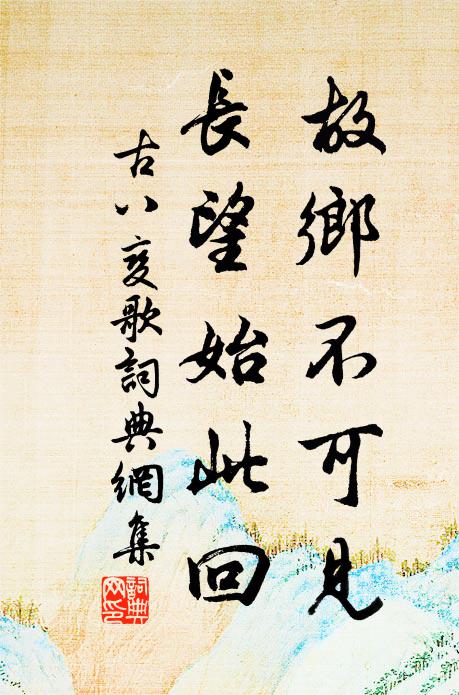 故鄉不可見
長望始此回
古八變歌詞典網集
詞典網印